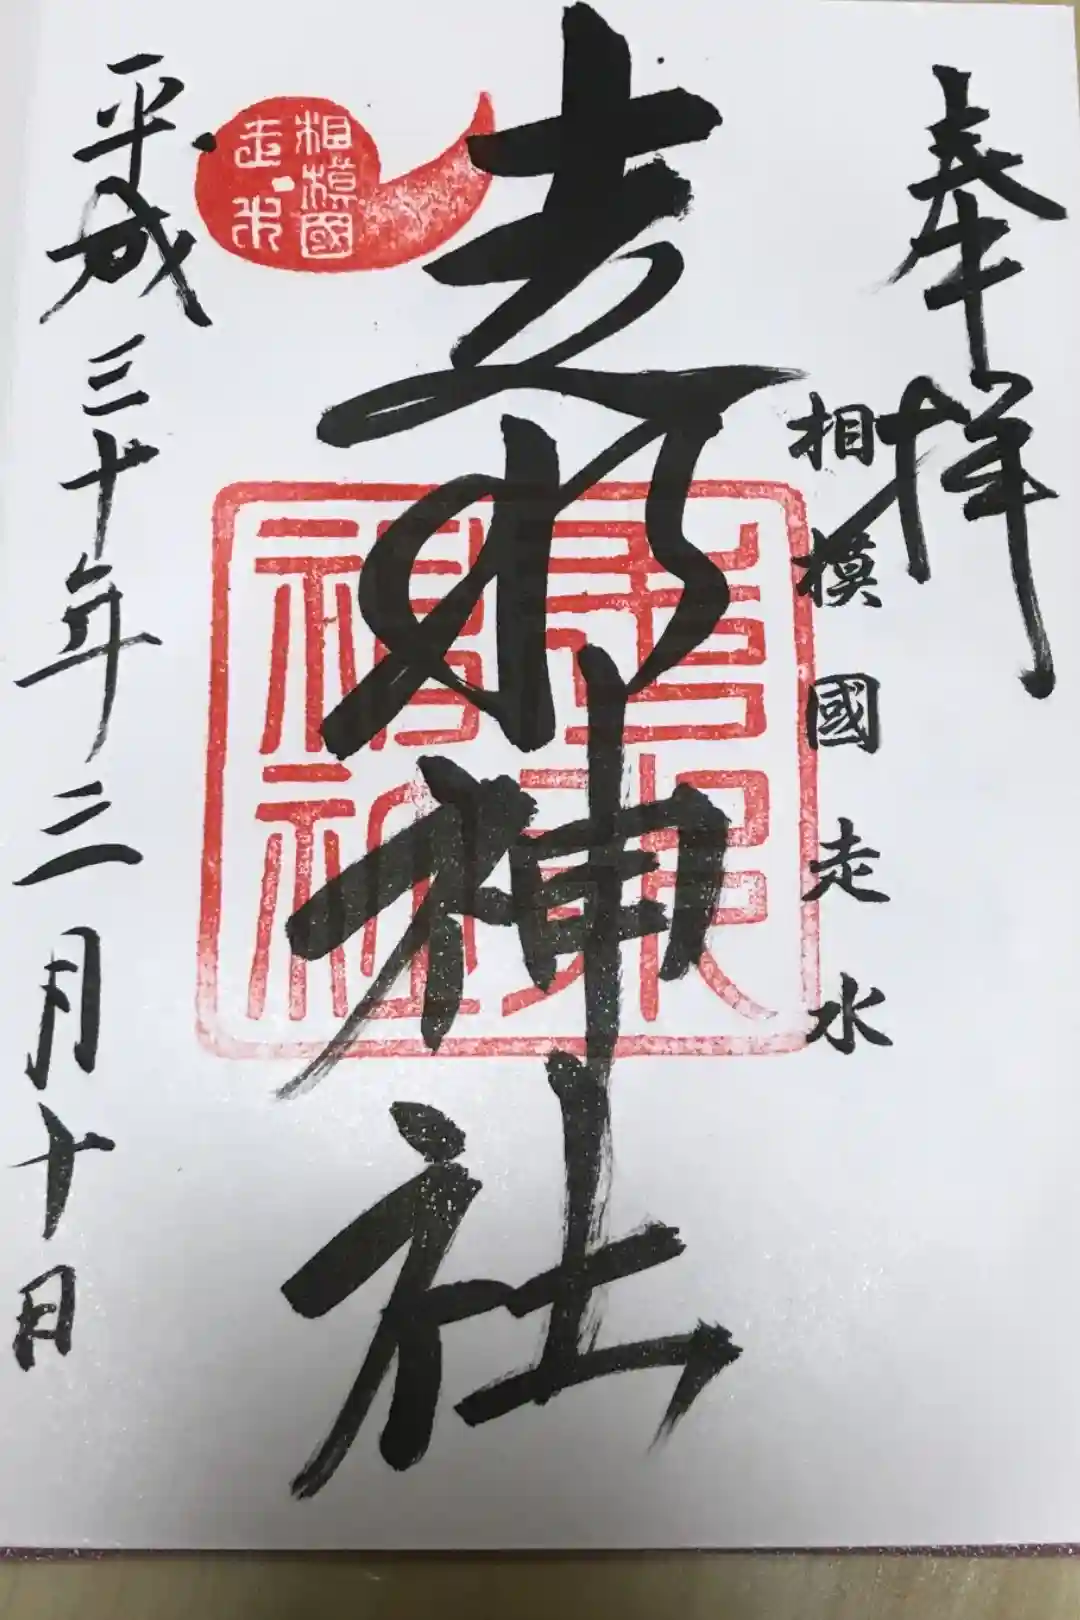 奉拝
相模國走水
走水神社
相模國
走水
走水
神社
平成三十年三月十日